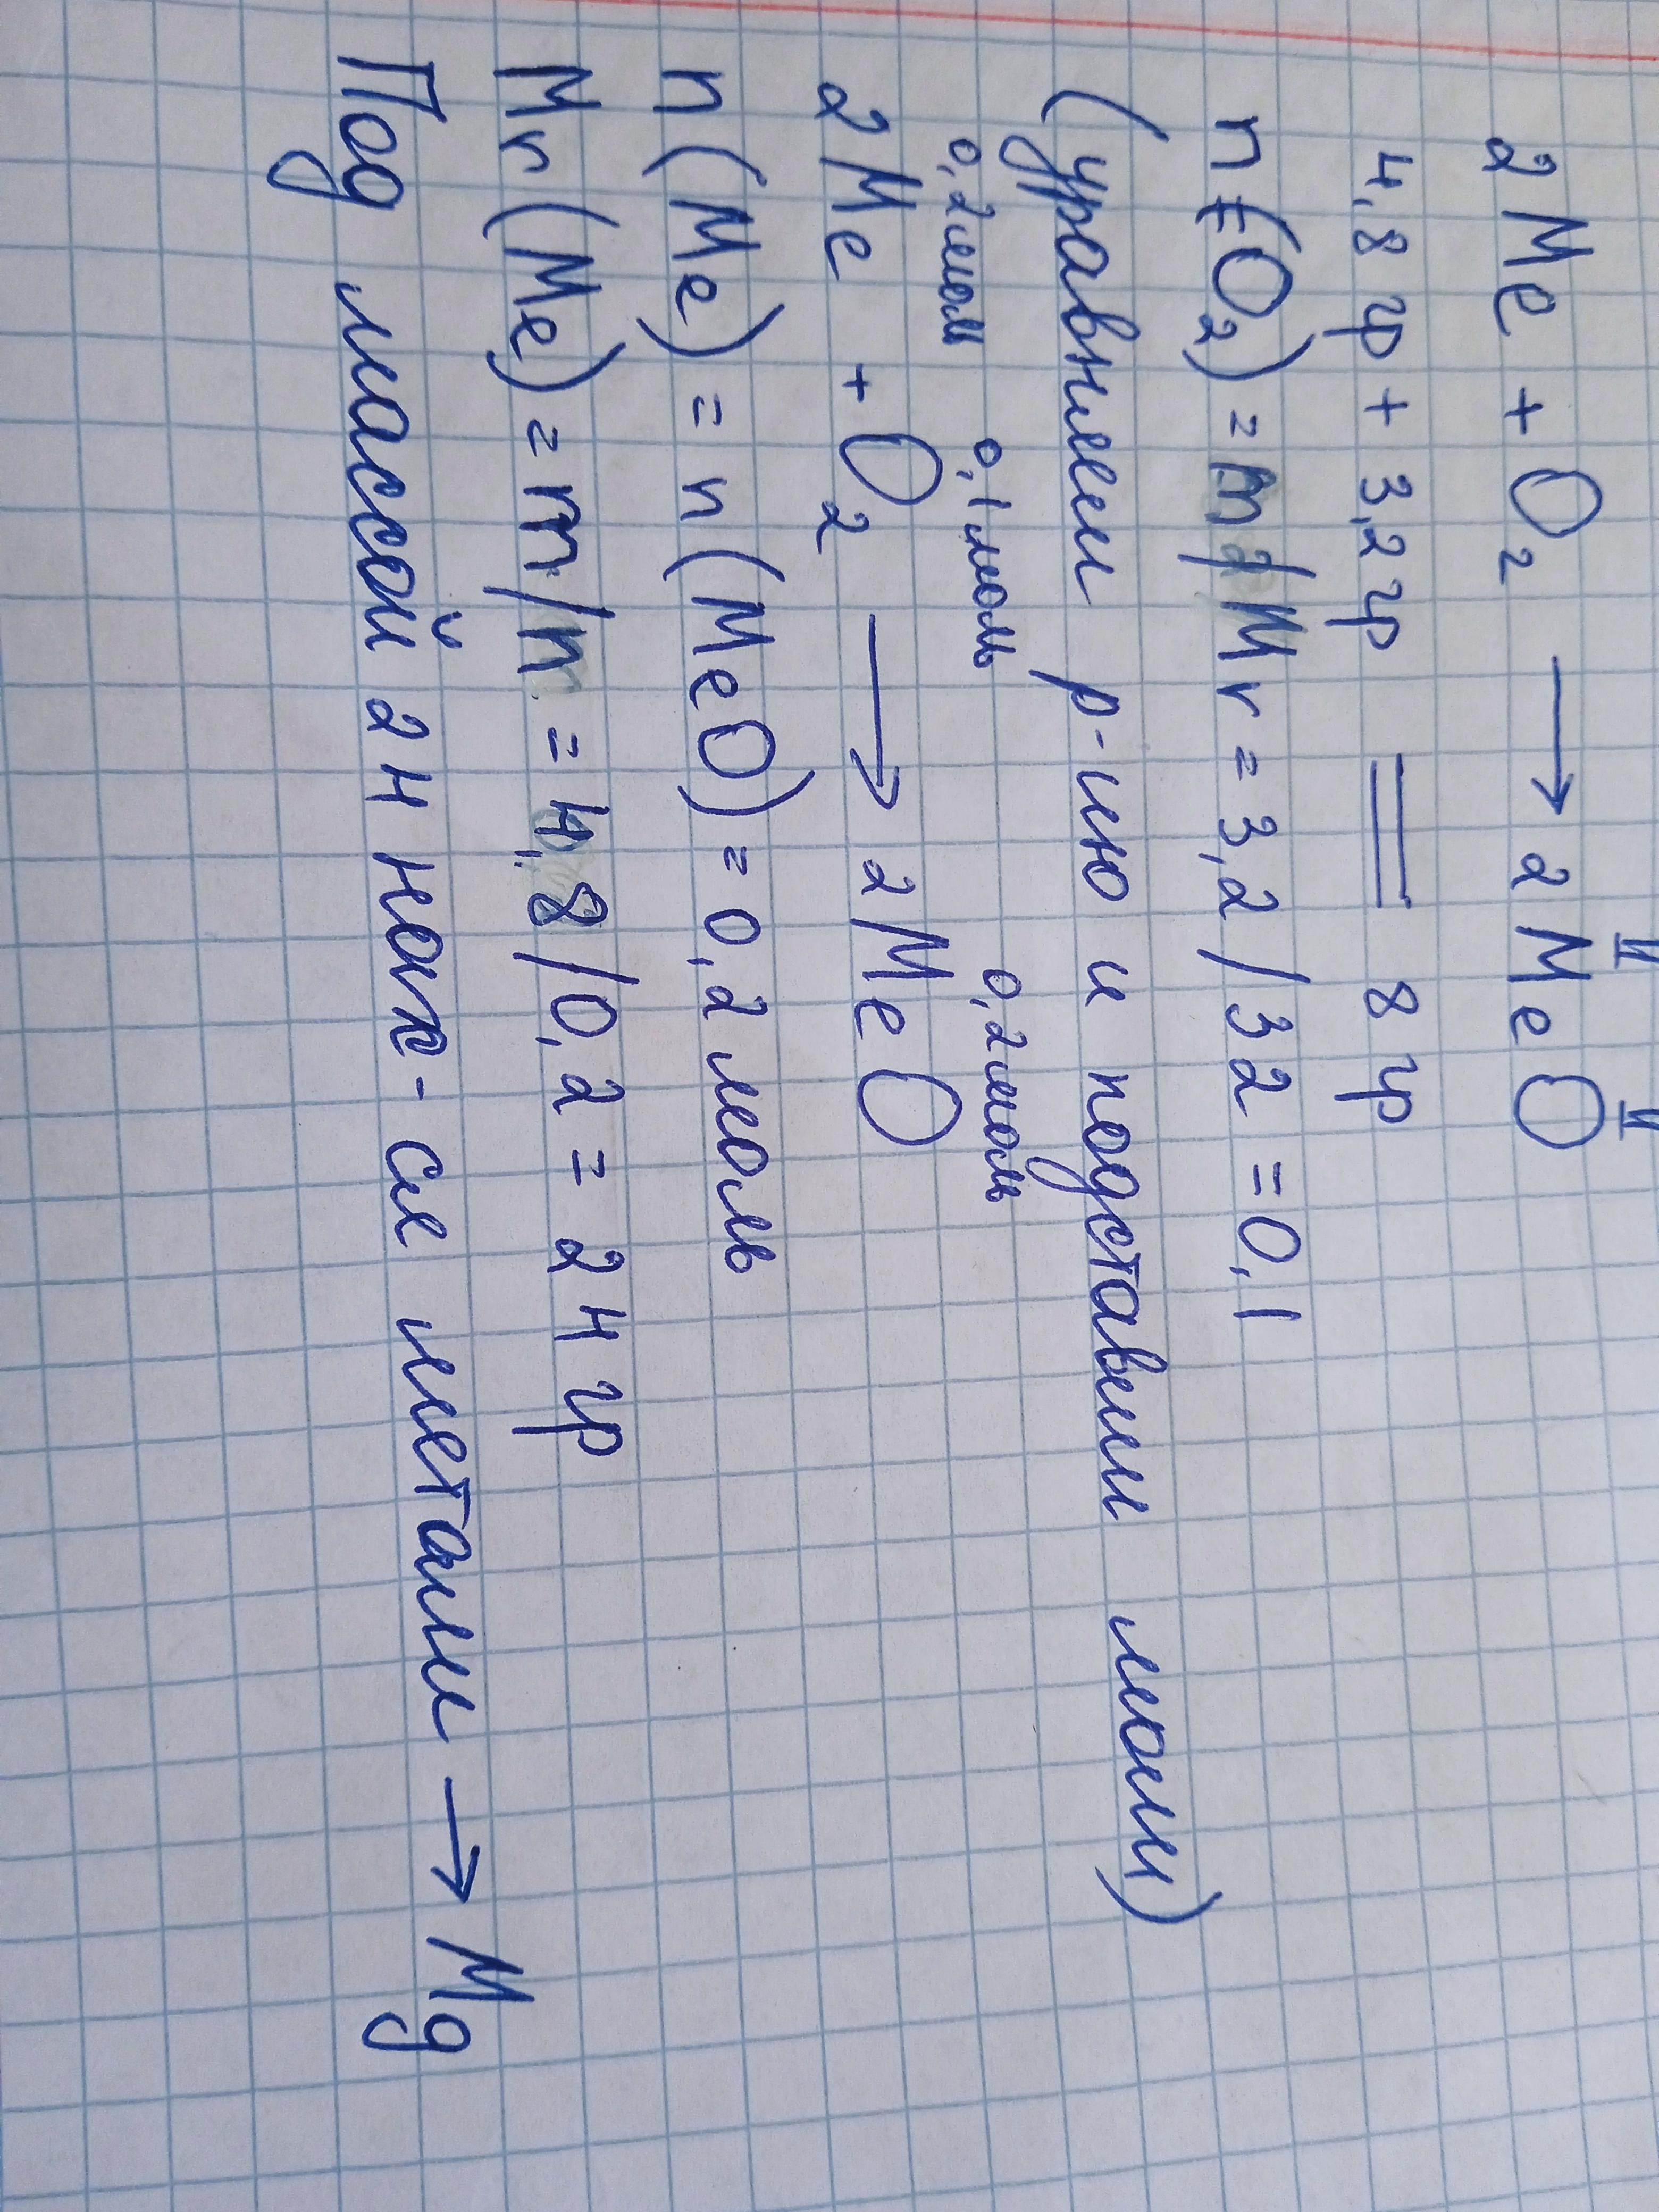 II II
2Me + O₂ → 2MeO
4,8 гр + 3,2 гр = 8 гр
n(O₂) = m/Mr = 3,2/32 = 0,1
(уравнили р-ию и подставили моли)
0,2моль 0,1моль 0,2моль
2Me + O₂ → 2MeO
n(Me) = n(MeO) = 0,2 моль
Mr(Me) = m/n = 4,8/0,2 = 24 гр
Под массой 24 нах-ся металл → Mg